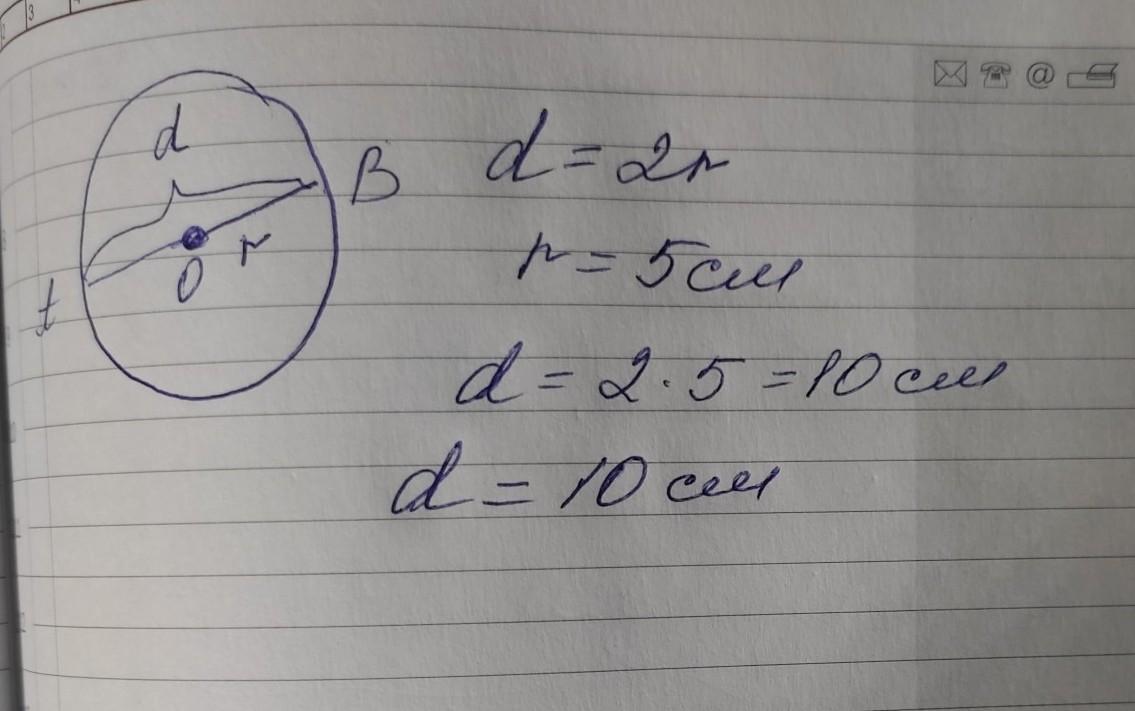 3
d
B
O
r
t
d = 2r
r = 5 см
d = 2 · 5 = 10 см
d = 10 см
@